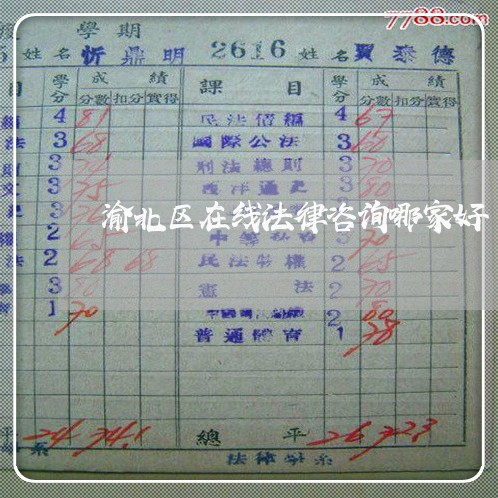 7788.com
學期
5 姓名 忻鼎明 2616 姓名 賈泰德
目 學分 成績 課目 學分 成績
分數 扣分 實得 分數 扣分 實得
4 81 民法債編 4 67
法 3 68 國際公法 3 60
3 刑法總則 3 70
3 75 西洋通史 3 80
渝北区在线法律咨询哪家好
2 3 70
法 2 68 68 民法物權 2 65
3 80 憲法 2 70
1 70 2 80
普通體育 1 78
平 24 74.1 總平 26 72.3
系 法律學系